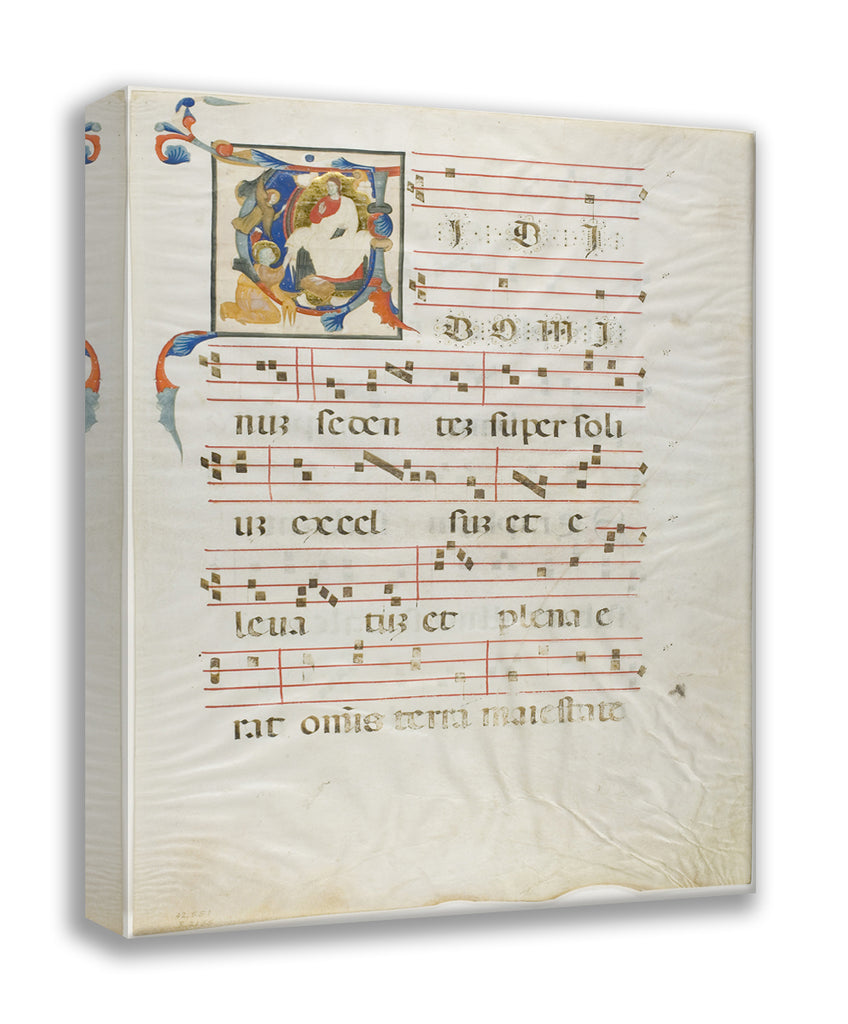 V I D I
D O M I
nuz seden tez super soli
uz excel suz et e
leua tuz et plena e
rat om̄is terra maiestate